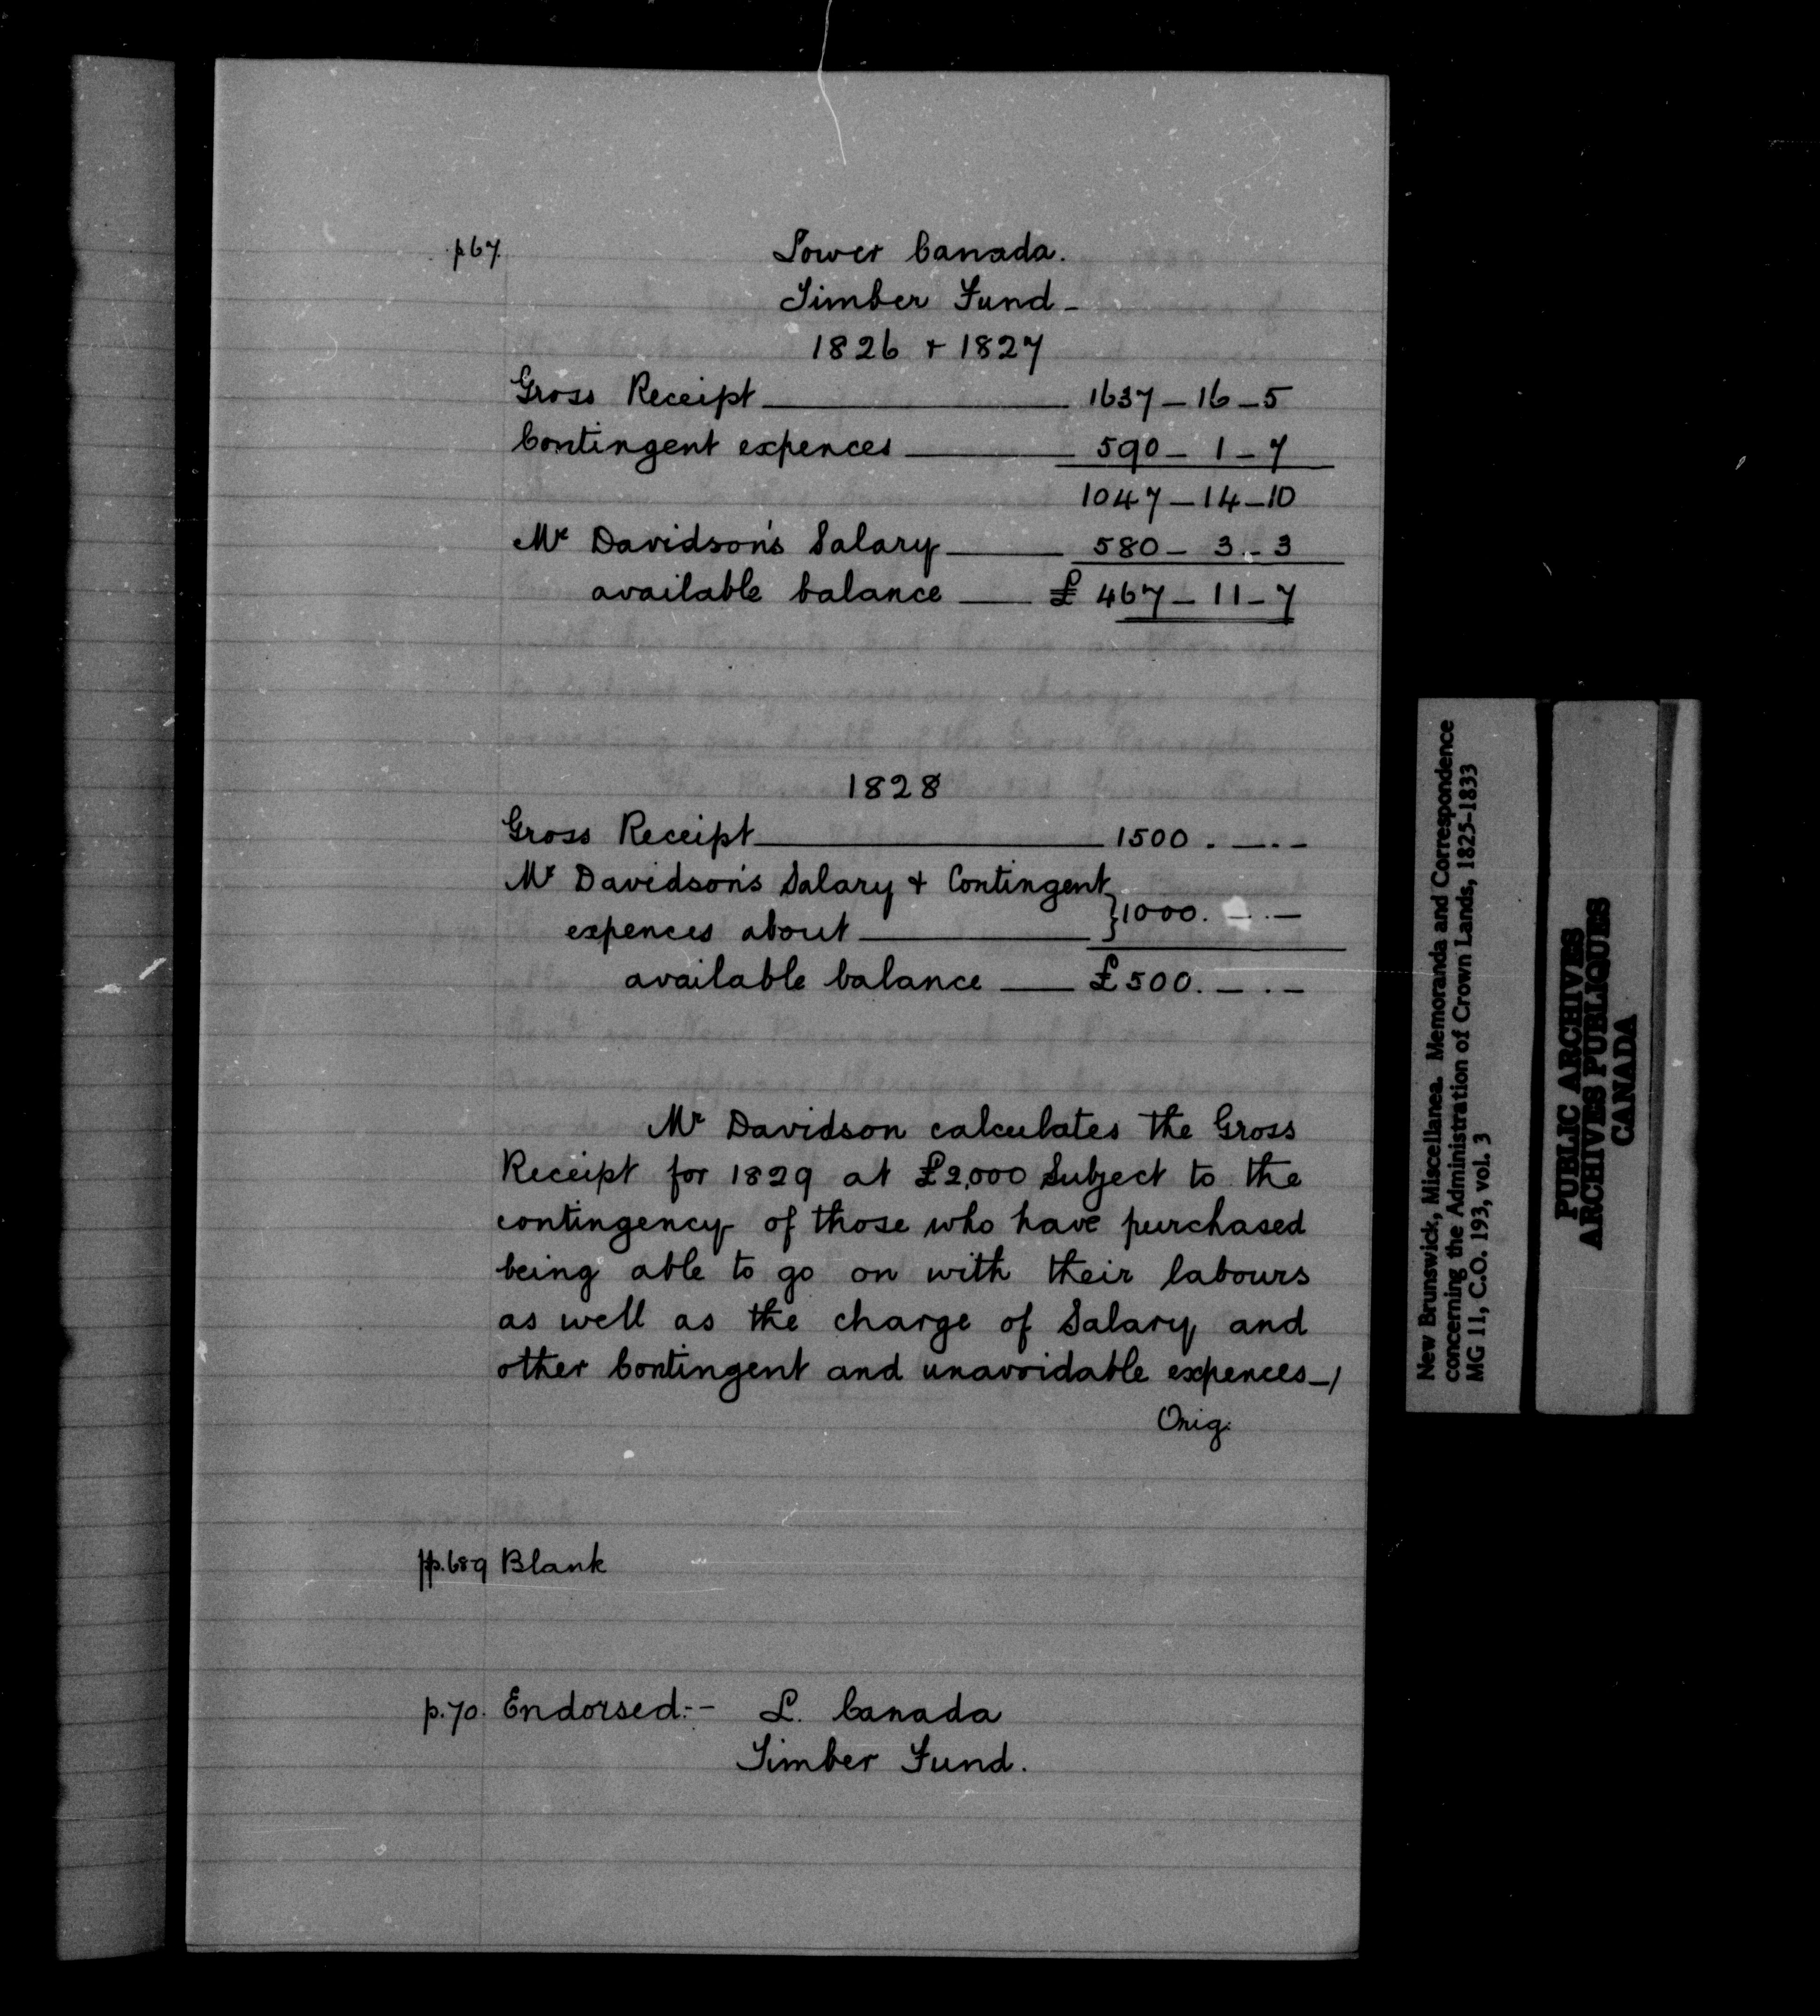 p67.
Lower Canada.
Timber Fund -
1826 + 1827
Gross Receipt ______ 1637 - 16 - 5
Contingent expences ______ 590 - 1 - 7
1047 - 14 - 10
Mr Davidson's Salary ______ 580 - 3 - 3
available balance ___ £ 467 - 11 - 7
1828
Gross Receipt ______ 1500 . - . -
Mr Davidson's Salary + Contingent
expences about ______ } 1000. - . -
available balance ___ £500. - . -
Mr Davidson calculates the Gross
Receipt for 1829 at £2,000 Subject to the
contingency of those who have purchased
being able to go on with their labours
as well as the charge of Salary and
other Contingent and unavoidable expences -/
Orig.
pp.689 Blank
p.70. Endorsed:- L. Canada
Timber Fund.
New Brunswick, Miscellanea. Memoranda and Correspondence
concerning the Administration of Crown Lands, 1825-1833
MG 11, C.O. 193, vol. 3
PUBLIC ARCHIVES
ARCHIVES PUBLIQUES
CANADA